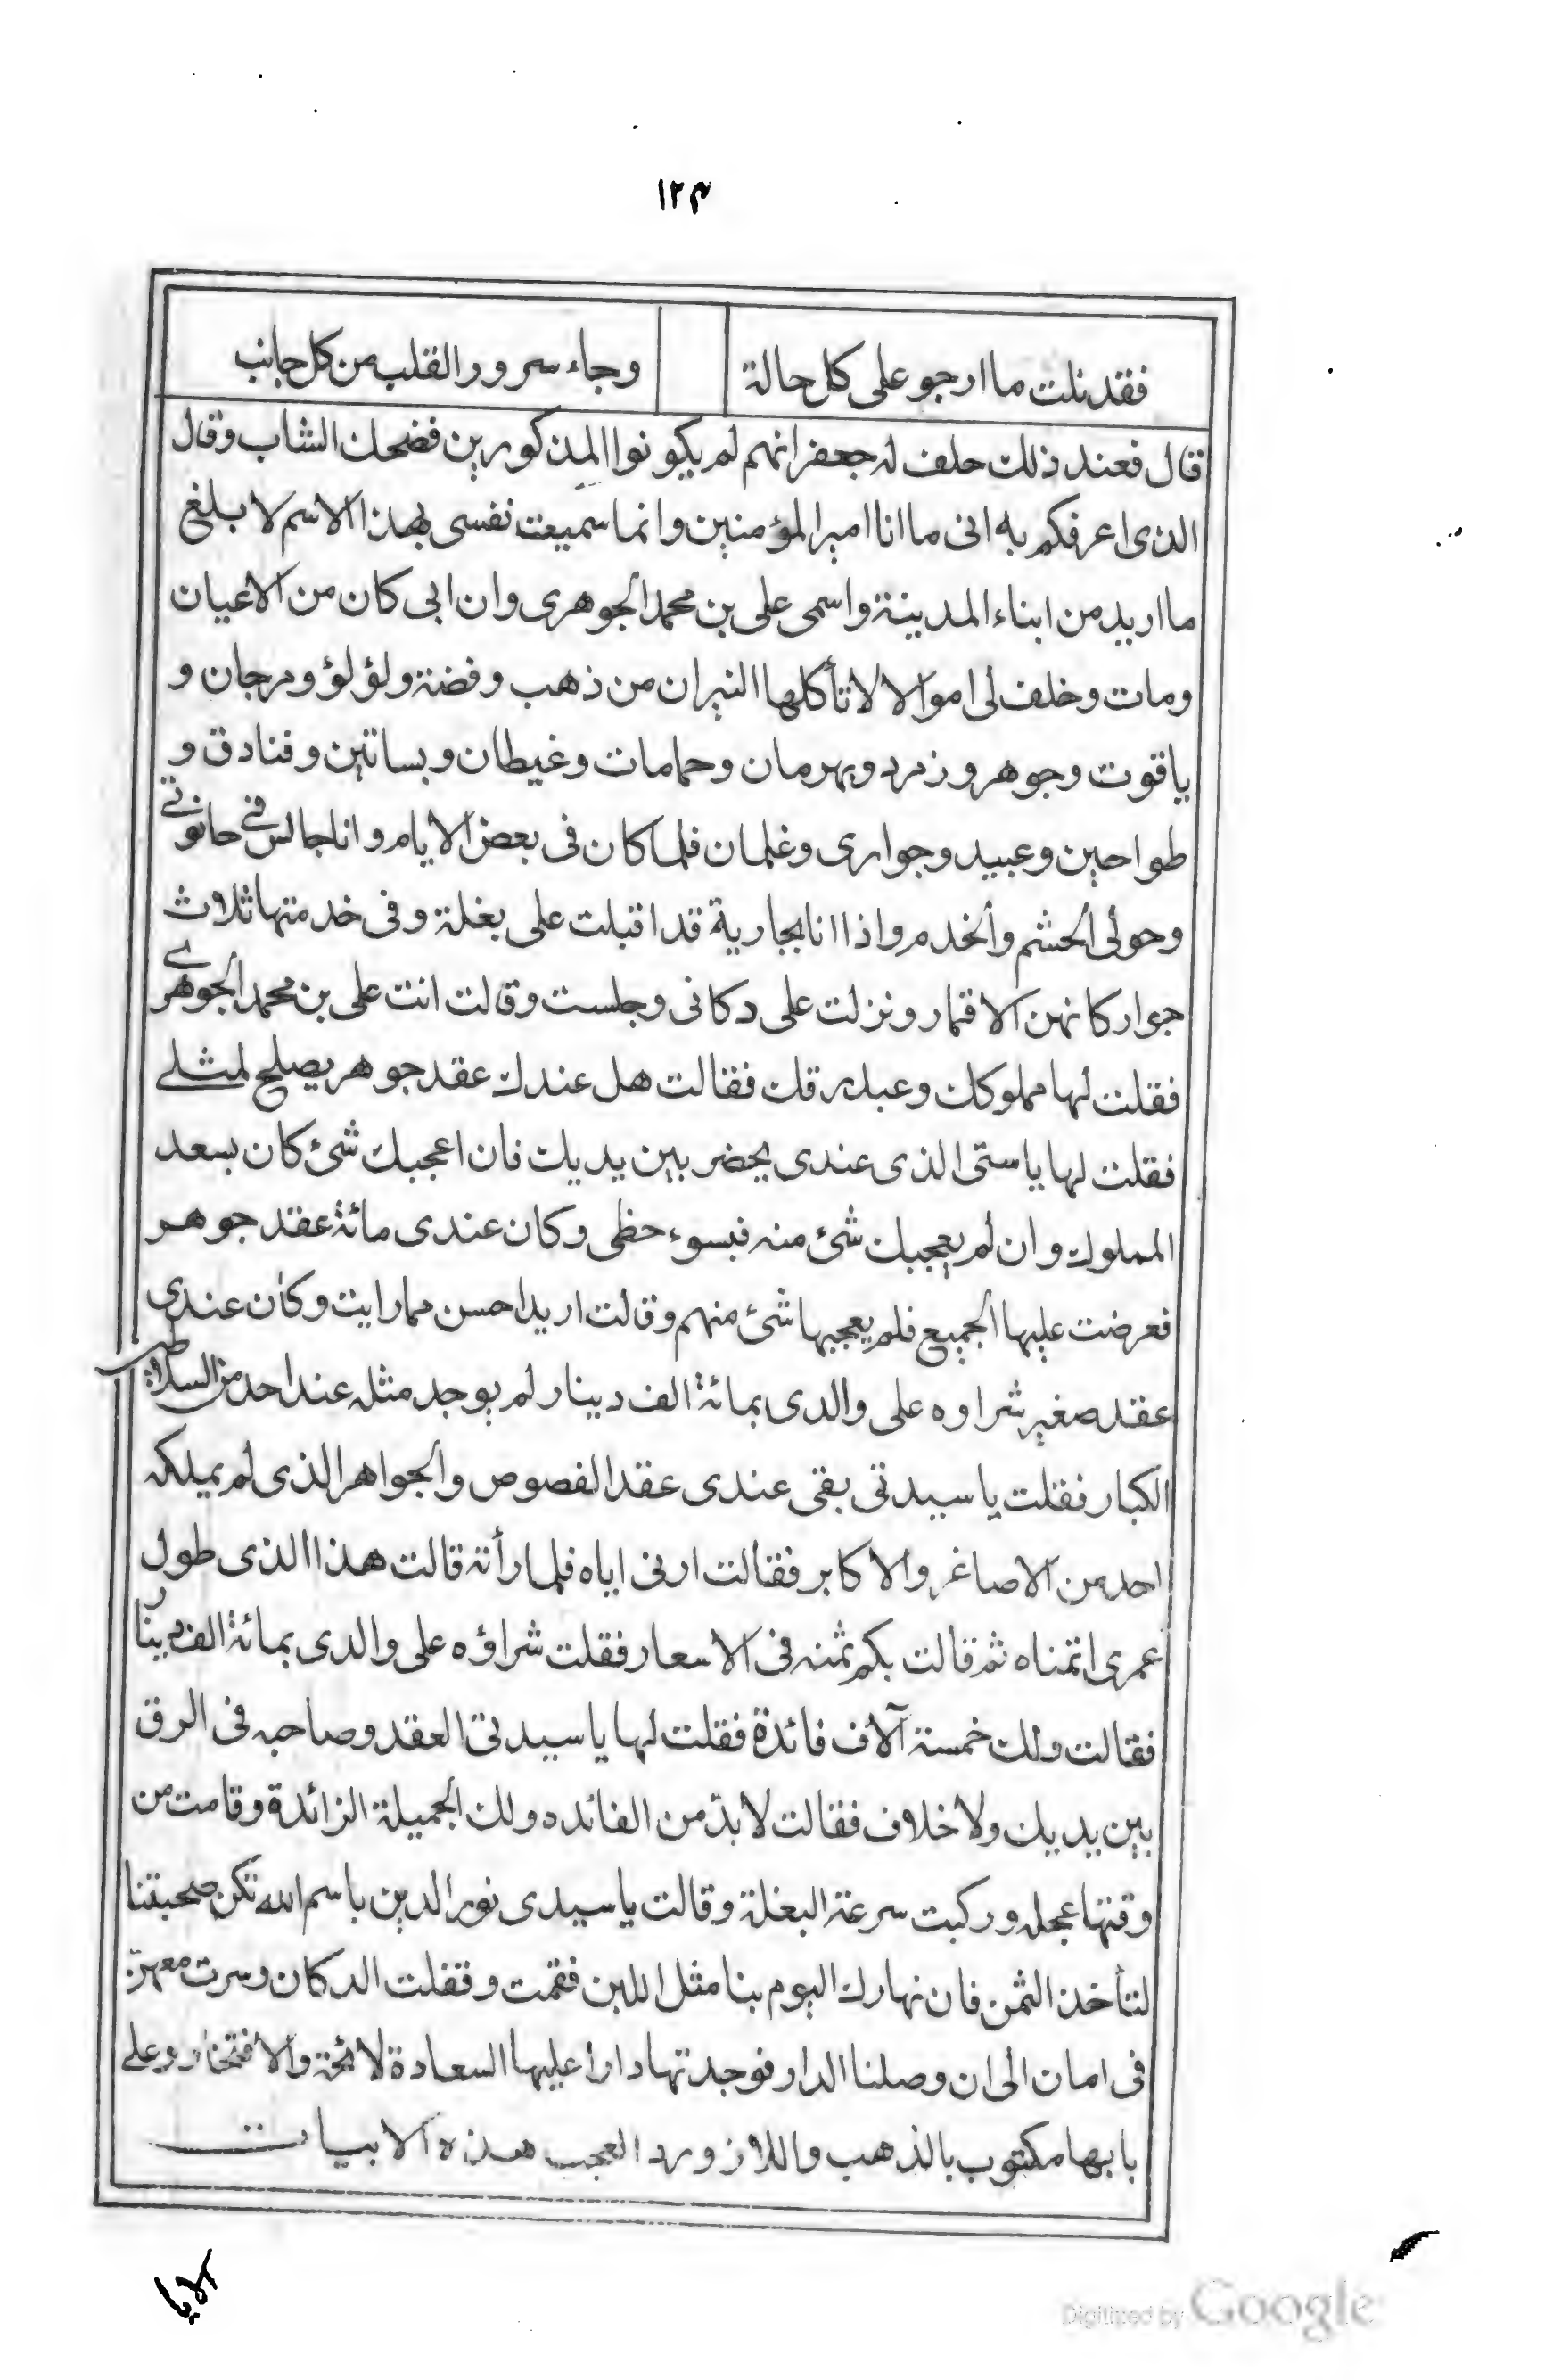 ١٢٣
فقد نلت ما ارجو على كل حالة وجاء سرور القلب من كل جانب
قال فعند ذلك حلف له جعفر انهم لم يكونوا المذكورين فضحك الشاب وقال
الذى اعرفكم به انى ما انا امير المؤمنين وانما سميت نفسى بهذا الاسم لا بلغ
ما اريد من ابناء المدينة واسمى على بن محمد الجوهرى وان ابى كان من الاعيان
ومات وخلف لى اموالا لا تأكلها النيران من ذهب وفضة ولؤلؤ ومرجان و
ياقوت وجوهر وزمرد وبهرمان وحمامات وغيطان وبساتين وفنادق و
طواحين وعبيد وجوارى وغلمان فلما كان فى بعض الايام وانا جالس فى حانوتى
وحولى الحشم والخدم واذا انا بجارية قد اقبلت على بغلة وفى خدمتها ثلاث
جوار كانهن الاقمار ونزلت على دكانى وجلست وقالت انت على بن محمد الجوهرى
فقلت لها مملوكك وعبد رقك فقالت هل عندك عقد جوهر يصلح لمثلى
فقلت لها يا ستى الذى عندى يحضر بين يديك فان اعجبك شئ كان بسعد
المملوك وان لم يعجبك شئ منه فبسوء حظى وكان عندى مائة عقد جوهر
فعرضت عليها الجميع فلم يعجبها شئ منهم وقالت اريد احسن مما رايت وكان عندى
عقد صغير شراوه على والدى بمائة الف دينار لم يوجد مثله عند احد من السلاطين
الكبار فقلت يا سيدتى بقى عندى عقد الفصوص والجواهر الذى لم يملكه
احد من الاصاغر والاكابر فقالت ارنى اياه فلما رأته قالت هذا الذى طول
عمرى اتمناه ثم قالت بكم ثمنه فى الاسعار فقلت شراؤه على والدى بمائة الف دينار
فقالت ولك خمسة آلاف فائدة فقلت لها يا سيدتى العقد وصاحبه فى الرق
بين يديك ولا خلاف فقالت لا بدّ من الفائده ولك الجميلة الزائدة وقامت من
وقتها عجله وركبت سرعة البغلة وقالت يا سيدى نور الدين باسم الله تكن صحبتنا
لتأخذ الثمن فان نهارك اليوم بنا مثل اللبن فقمت وقفلت الدكان وسرت معهنّ
فى امان الى ان وصلنا الدار فوجدتها دارا عليها السعادة لائحة والافتخار وعلى
بابها مكتوب بالذهب واللازورد العجب هذه الابيات
الايا
Digitized by Google